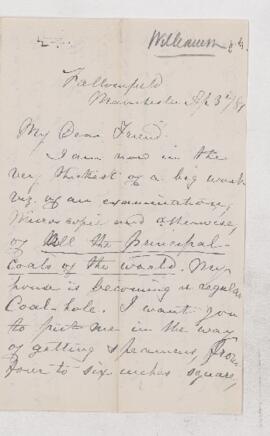 Williamson
Fallowfield
Manchester
My Dear Friend
I am now in the
very thickest of a big work
viz. of an examination,
Microscopic and otherwise,
of all the principal
Coals of the world. My
house is becoming a regular
Coal-hole. I want you
to put me in the way
of getting specimens, from
four to six inches square,